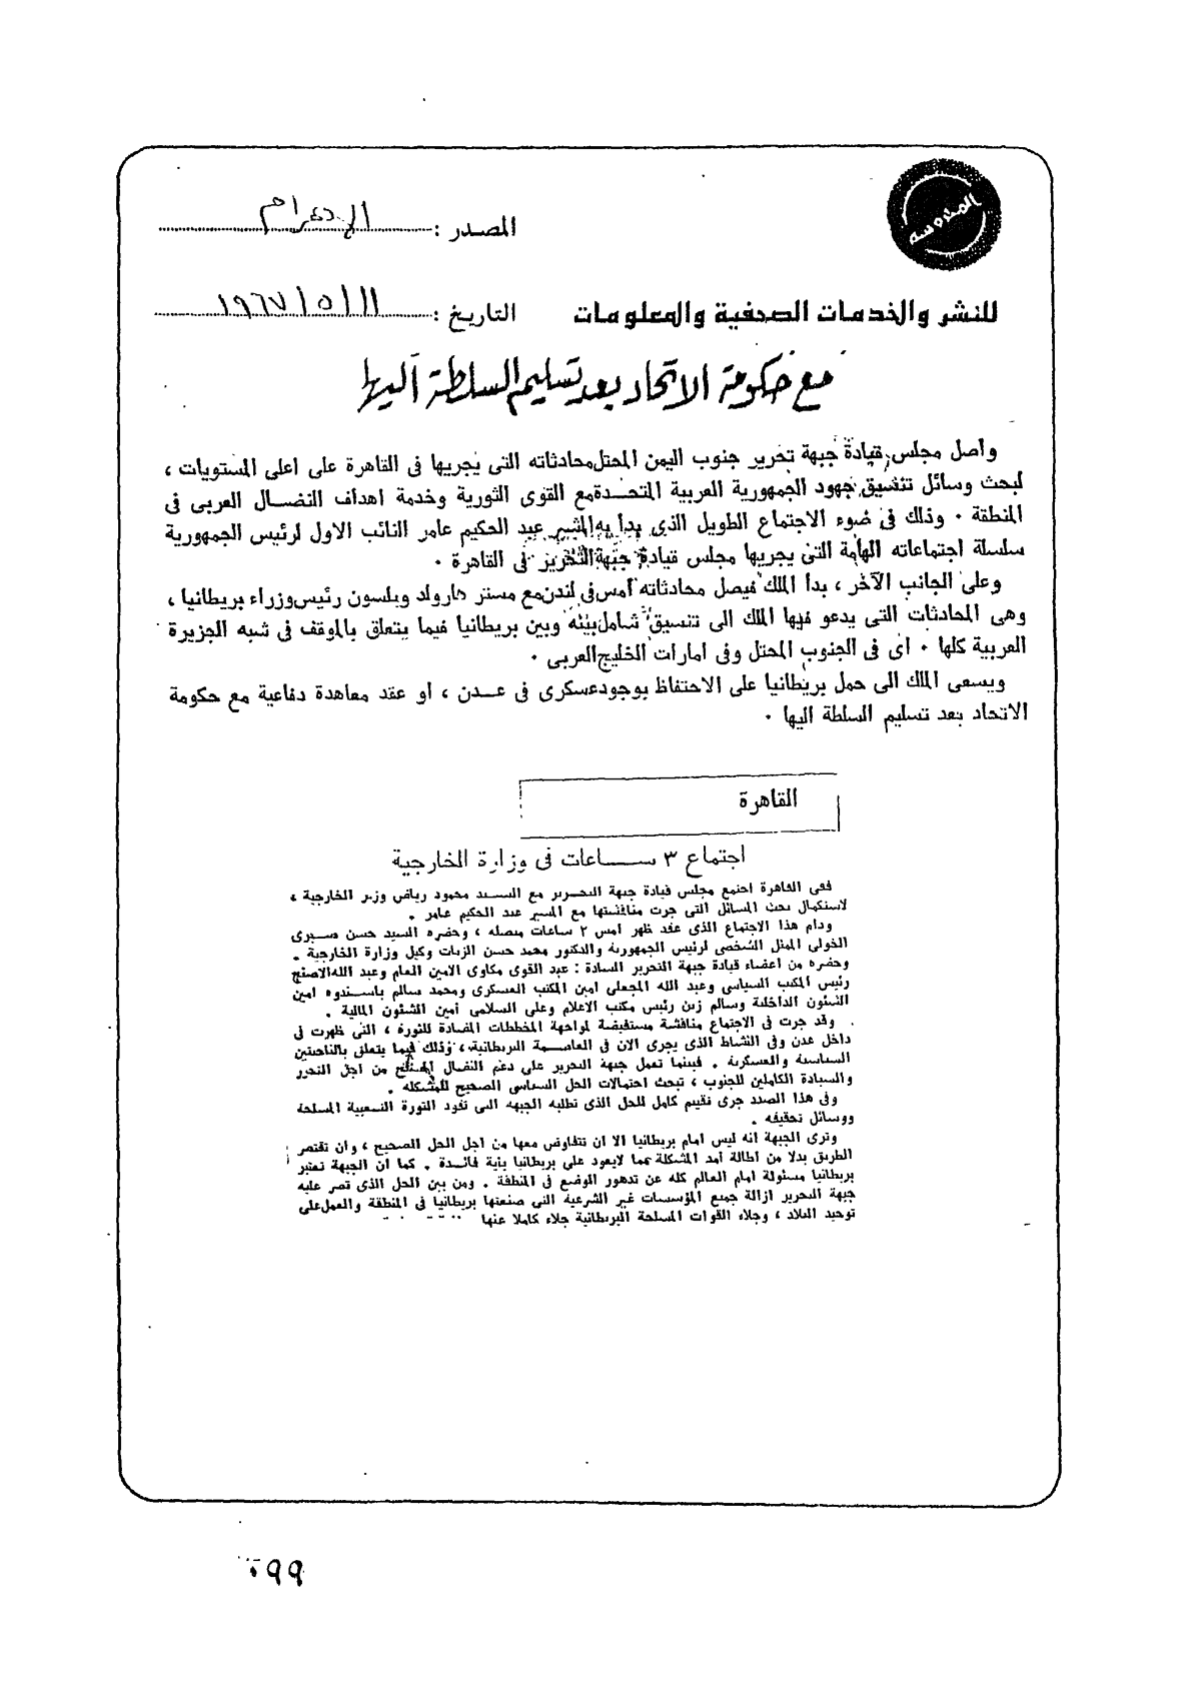 المحروسة
المصدر : الاهرام
للنشر والخدمات الصحفية والمعلومات
التاريخ : ١١ / ٥ / ١٩٦٧
مع حكومة الاتحاد بعد تسليم السلطة اليها
واصل مجلس قيادة جبهة تحرير جنوب اليمن المحتل محادثاته التى يجريها فى القاهرة على اعلى المستويات ،
لبحث وسائل تنسيق جهود الجمهورية العربية المتحدة مع القوى الثورية وخدمة اهداف النضال العربى فى
المنطقة ٠ وذلك فى ضوء الاجتماع الطويل الذى بدأ به المشير عبد الحكيم عامر النائب الاول لرئيس الجمهورية
سلسلة اجتماعاته الهامة التى يجريها مجلس قيادة جبهة التحرير فى القاهرة ٠
وعلى الجانب الآخر ، بدأ الملك فيصل محادثاته أمس فى لندن مع مستر هارولد ويلسون رئيس وزراء بريطانيا ،
وهى المحادثات التى يدعو فيها الملك الى تنسيق شامل بينه وبين بريطانيا فيما يتعلق بالموقف فى شبه الجزيرة
العربية كلها ٠ اى فى الجنوب المحتل وفى امارات الخليج العربى ٠
ويسعى الملك الى حمل بريطانيا على الاحتفاظ بوجود عسكرى فى عدن ، او عقد معاهدة دفاعية مع حكومة
الاتحاد بعد تسليم السلطة اليها ٠
القاهرة
اجتماع ٣ ساعات فى وزارة الخارجية
ففى القاهرة اجتمع مجلس قيادة جبهة التحرير مع السيد محمود رياض وزير الخارجية ،
لاستكمال بحث المسائل التى جرت مناقشتها مع المشير عبد الحكيم عامر .
ودام هذا الاجتماع الذى عقد ظهر امس ٣ ساعات متصلة ، وحضره السيد حسن صبرى
الخولى الممثل الشخصى لرئيس الجمهورية والدكتور محمد حسن الزيات وكيل وزارة الخارجية .
وحضره من اعضاء قيادة جبهة التحرير السادة : عبد القوى مكاوى الامين العام وعبد الله الاصنج
رئيس المكتب السياسى وعبد الله المجعلى امين المكتب العسكرى ومحمد سالم باسندوه امين
الشئون الداخلية وسالم زين رئيس مكتب الاعلام وعلى السلامى أمين الشئون المالية .
وقد جرت فى الاجتماع مناقشة مستفيضة لمواجهة المخططات المضادة للثورة ، التى ظهرت فى
داخل عدن وفى النشاط الذى يجرى الان فى العاصمة البريطانية ، وذلك فيما يتعلق بالناحيتين
السياسية والعسكرية . فبينما تعمل جبهة التحرير على دعم النضال المسلح من اجل التحرر
والسيادة الكاملين للجنوب ، تبحث احتمالات الحل السياسى الصحيح للمشكلة .
وفى هذا الصدد جرى تقييم كامل للحل الذى تطلبه الجبهة التى تقود الثورة الشعبية المسلحة
ووسائل تحقيقه .
وترى الجبهة انه ليس امام بريطانيا الا ان تتفاوض معها من اجل الحل الصحيح ، وان تقتصر
الطريق بدلا من اطالة أمد المشكلة مما لايعود على بريطانيا بأية فائدة . كما ان الجبهة تعتبر
بريطانيا مسئولة امام العالم كله عن تدهور الوضع فى المنطقة . ومن بين الحل الذى تصر عليه
جبهة التحرير ازالة جميع المؤسسات غير الشرعية التى صنعتها بريطانيا فى المنطقة والعمل على
توحيد البلاد ، وجلاء القوات المسلحة البريطانية جلاء كاملا عنها
٠٩٩